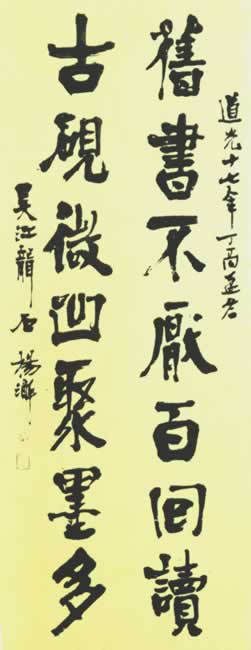 道光十七年丁酉
舊書不厭百回讀
古硯微凹聚墨多
吳江龍石楊澥